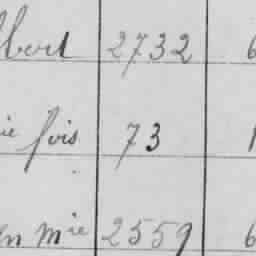 lbert 2732 6
ie fois 73 1
en mie 2559 6